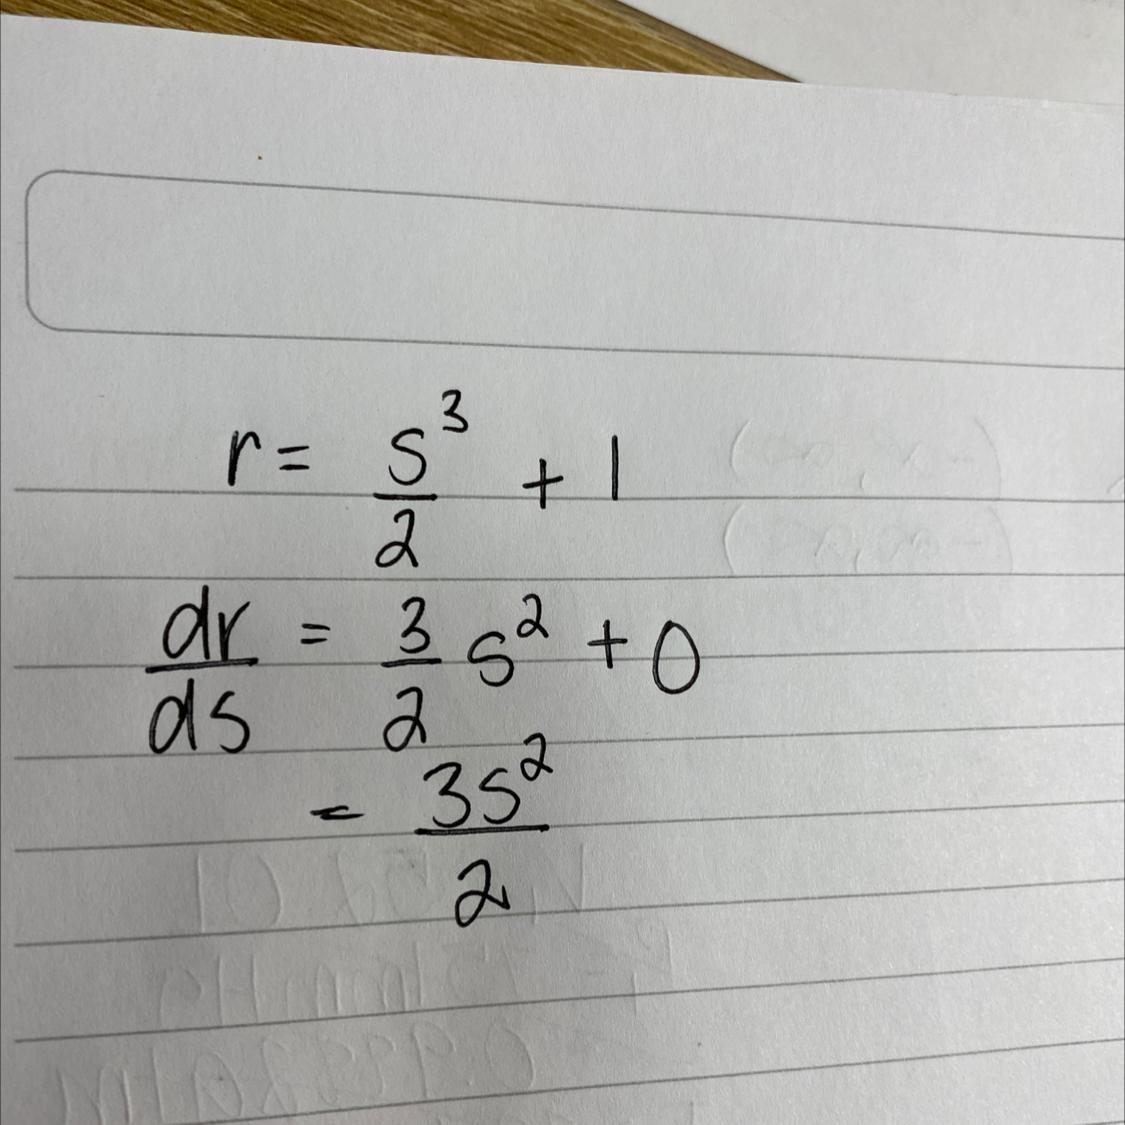 r = s³/2 + 1
dr/ds = 3/2 s² + 0
= 3s²/2